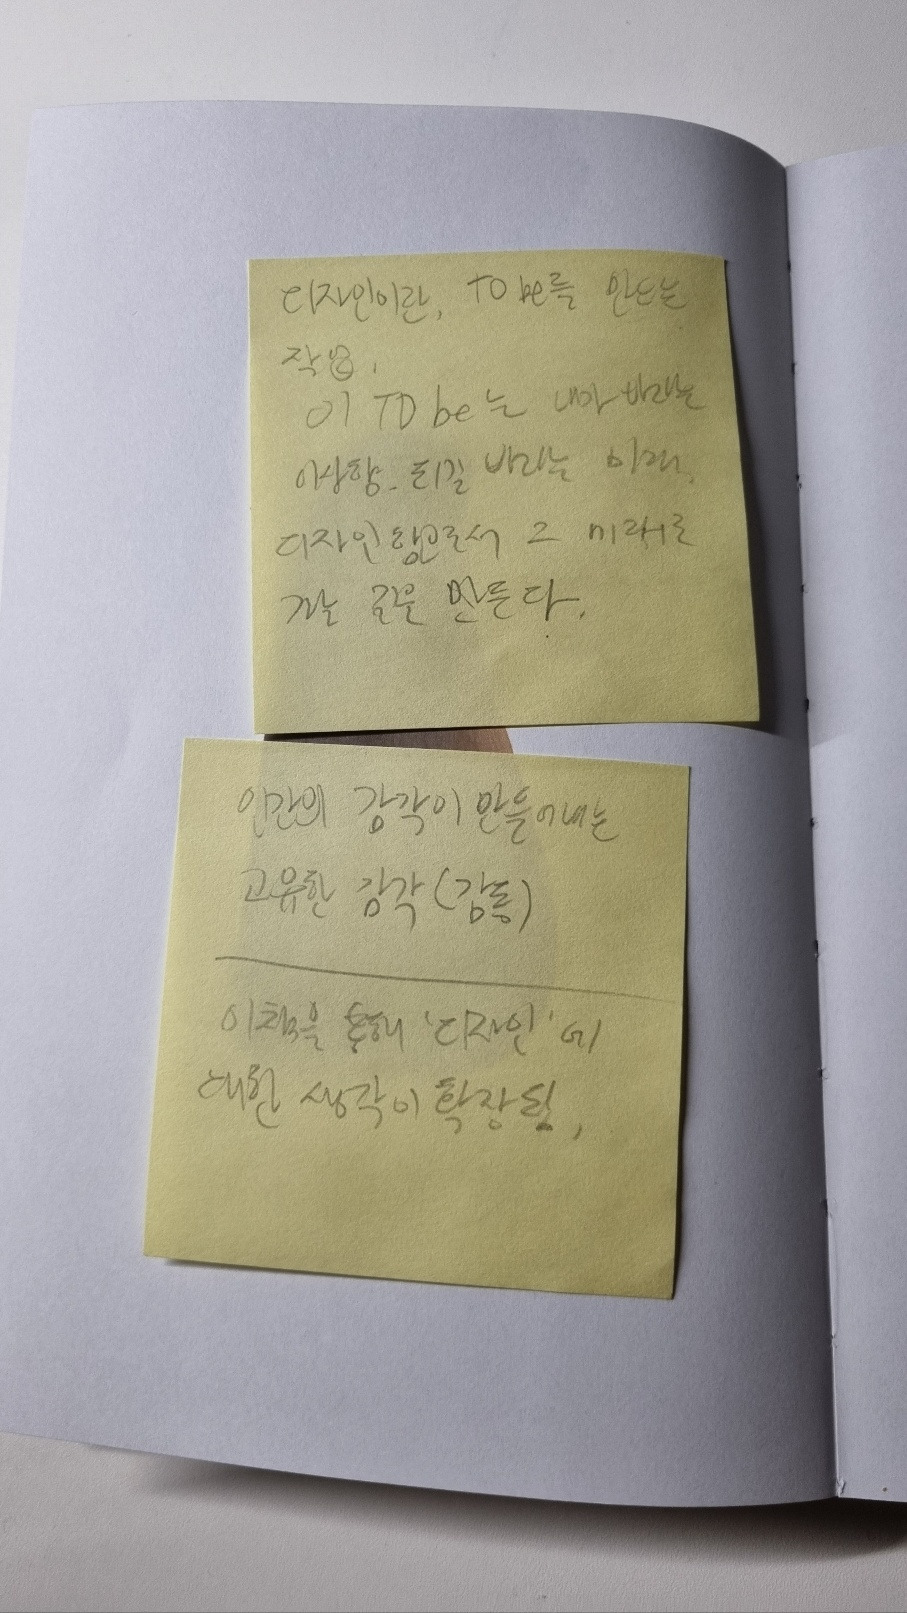 디자인이란, TO be를 만드는
작업.
이 TO be는 내가 바라는
이상향. 되길 바라는 미래.
디자인함으로서 그 미래로
가는 길을 만든다.
인간의 감각이 만들어내는
고유한 감각(감동)
이책을 통해 '디자인'에
대한 생각이 확장됨.